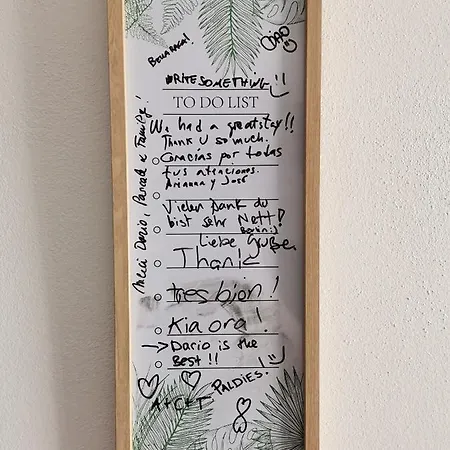 BELLA RAGA!
CIAO
WRITE SOMETHING!!
TO DO LIST
We had a great stay!!
Thank U so much.
Gracias por todas
tus atenciones.
Arianna y José
Vielen Dank du
bist sehr Nett!
Berlin :)
Liebe Grüße
Thank
tres bion!
Kia ora!
> Dario is the
Best!!
PALDIES!
A+C+T
Merci Dario, & Family!